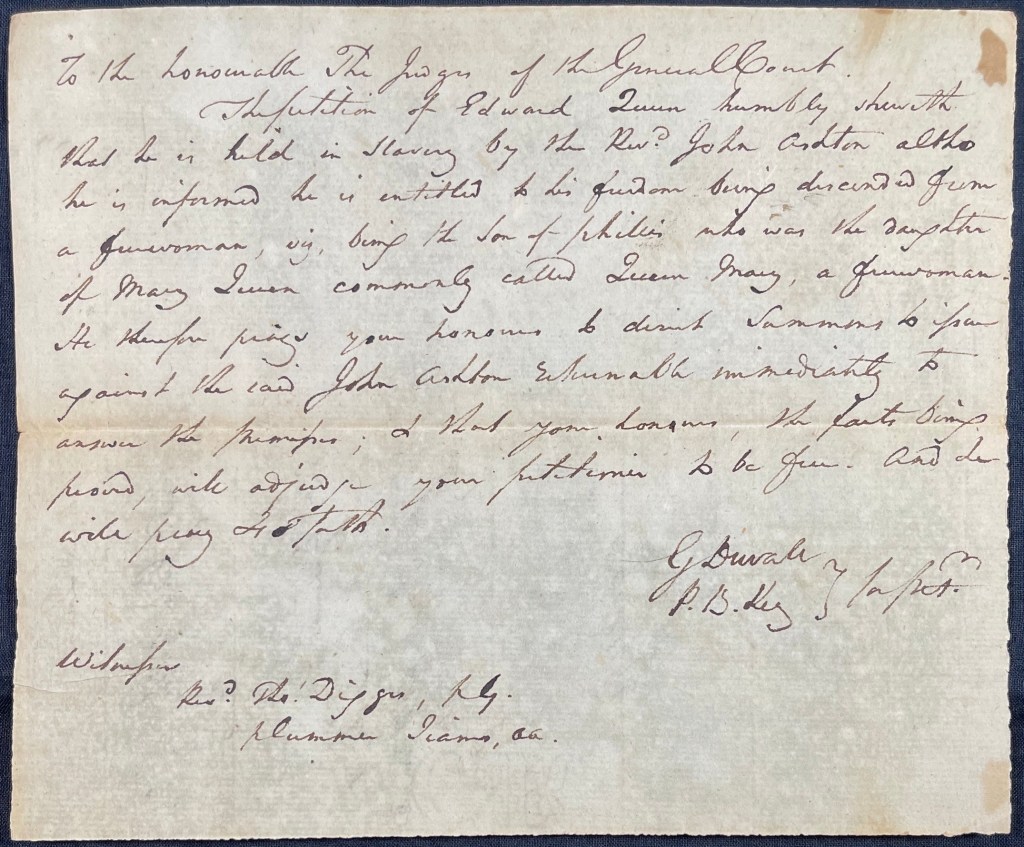 To the honourable The Judges of the General Court.
The petition of Edward Queen humbly sheweth
that he is held in slavery by the Revd. John Ashton altho
he is informed he is entitled to his freedom being descended from
a freewoman, viz, being the son of Phillis who was the daughter
of Mary Queen commonly called Queen Mary, a freewoman.
He therefore prays your honours to direct Summons to issue
against the said John Ashton returnable immediately to
answer the premises; & that your honours, the facts being
proved, will adjudge your petitioner to be free. And he
will pray &c
G Duvall
P. B. Key } for petr.
Witnesses
Revd. Thos. Digges, pg.
Plummer Iiams, aa.